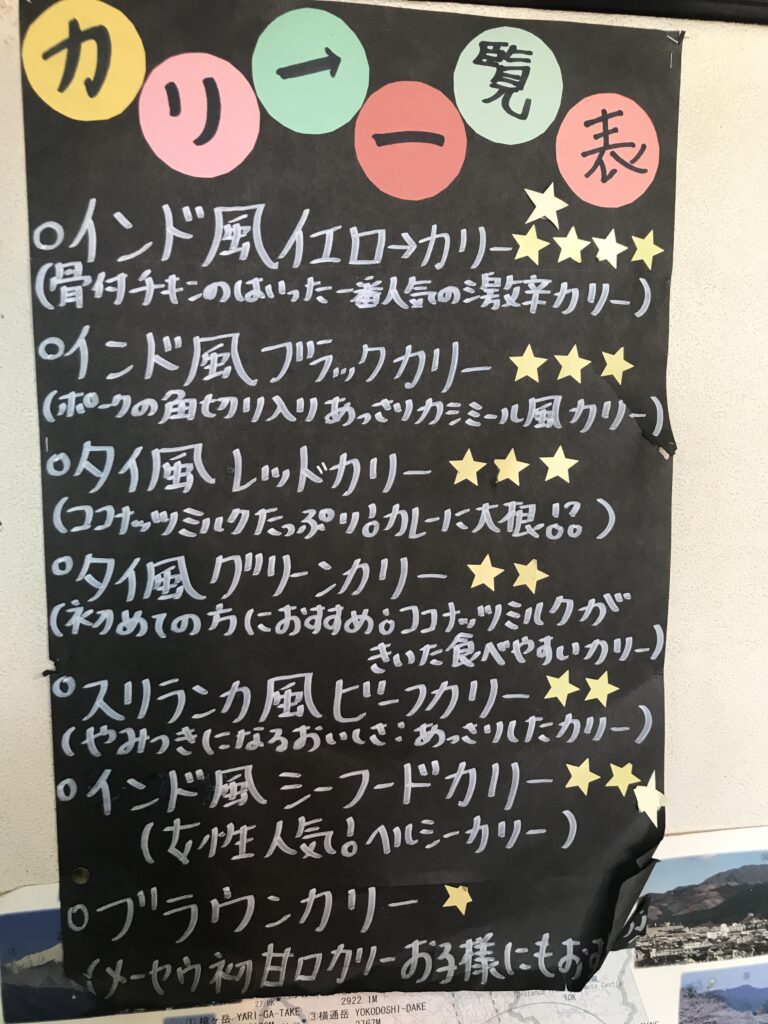 カリー一覧表
○インド風イエローカリー ★★★★★
(骨付チキンのはいった一番人気の激辛カリー)
○インド風ブラックカリー ★★★
(ポークの角切り入りあっさりカシミール風カリー)
○タイ風レッドカリー ★★★
(ココナッツミルクたっぷり!カレーに大根!?)
○タイ風グリーンカリー ★★
(初めての方におすすめ!ココナッツミルクが
きいた食べやすいカリー)
○スリランカ風ビーフカリー ★★
(やみつきになるおいしさ!あっさりしたカリー)
○インド風シーフードカリー ★★★
(女性人気!ヘルシーカリー)
○ブラウンカリー ★
(メーセウ初甘口カリーお子様にもお
①槍ヶ岳 YARI-GA-TAKE
2922.1M
③横通岳 YOKODOSHI-DAKE
2767M